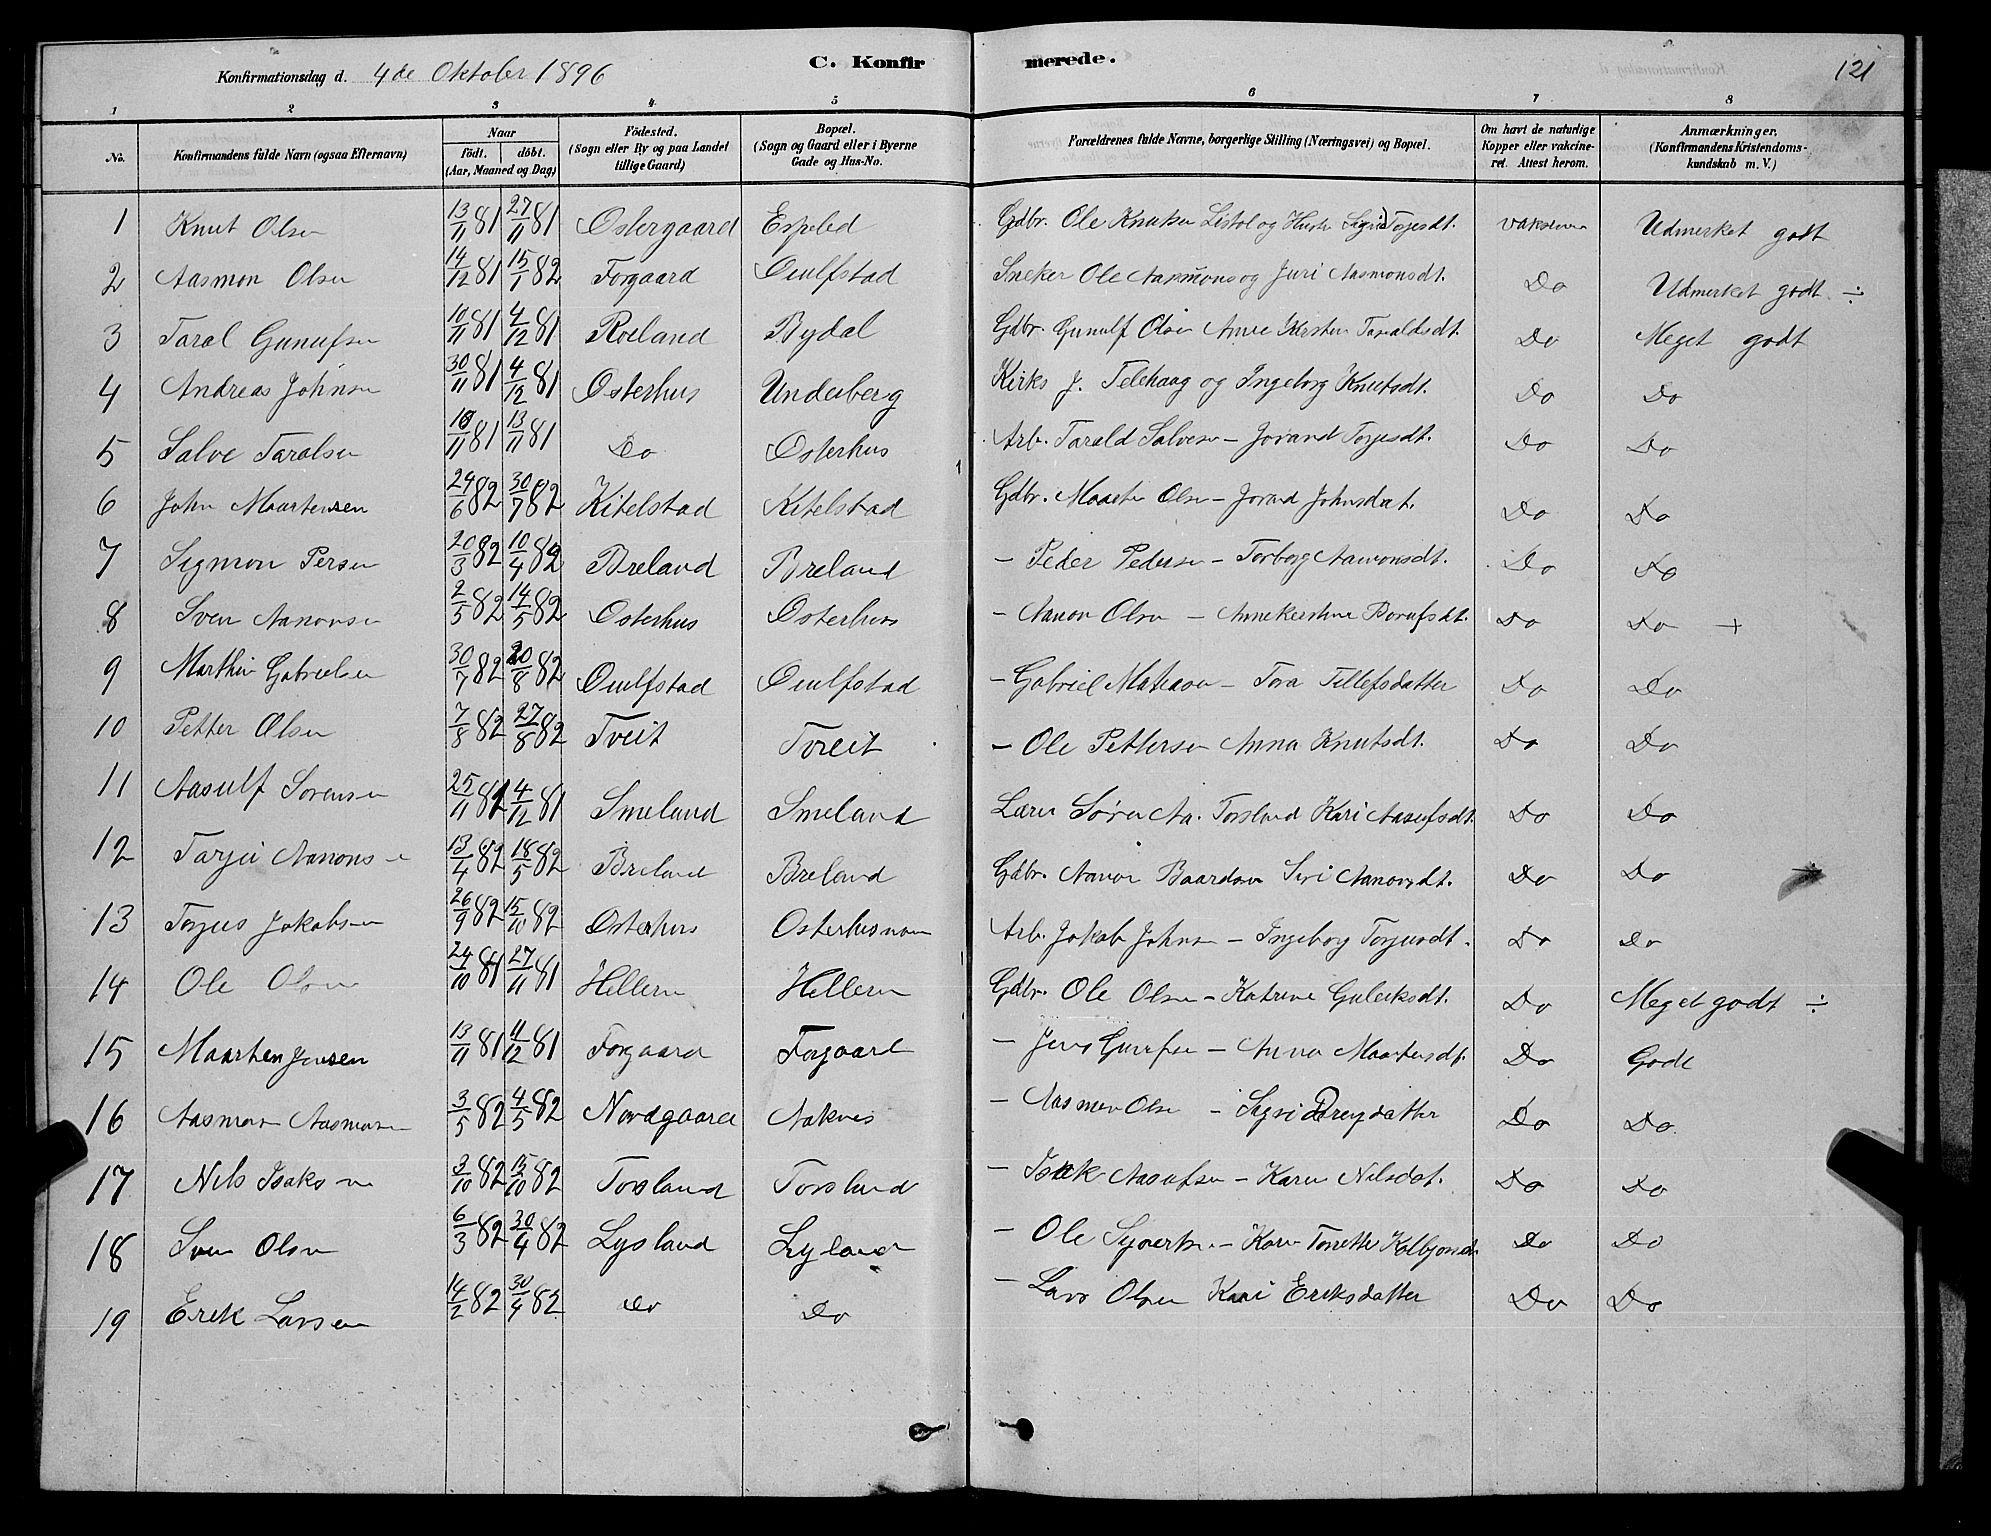 Konfirmationsdag d. 4de Oktober 1896 C. Konfirmerede. 121
1 2 3 4 5 6 7 8
No. Konfirmandens fulde Navn (ogsaa Efternavn) Naar født. døbt. (Aar, Maaned og Dag) Fødested. (Sogn eller By og paa Landet tillige Gaard) Bopæl. (Sogn og Gaard eller i Byerne Gade og Hus-No. Forældrenes fulde Navne, borgerlige Stilling (Næringsvei) og Bopæl. Om havt de naturlige Kopper eller vakcineret. Attest herom. Anmærkninger. (Konfirmandens Kristendomskundskab m. V.)
1 Knut Olsen 13/11 81 27/11 81 Ostergaard Espeled Gdbr. Ole Knutsen Listol og Hustr Sigrid Tojesdt. Udmerket godt
2 Aasmon Olsen 14/12 81 15/1 82 Forgaard Oulfstad Sneker Ole Aasmons og Juri Aasmonsdt. Do Udmerket godt ÷
3 Taral Gunufsen 10/11 81 4/12 81 Roeland Rydal Gdbr. Gunulf Olsen Anne Kirstine Taraldsdt. Do Meget godt
4 Andreas Johnsen 30/11 81 4/12 81 Osterhus Underberg Kirks J. Telehaag og Ingeborg Knutsdt. Do Do
5 Salve Taralsen 11 81 13/11 81 Do Osterhus Arb. Tarald Salvesen – Jorand Torjesdt. Do Do
6 John Maartensen 24/6 82 30/7 82 Kitelstad Kitelstad Gdbr. Maarten Olsen – Jorand Johnsdat. Do Do
7 Sigmon Persen 20/3 82 10/4 82 Breland Breland – Peder Pedersen – Torborg Aanonsdt. Do Do
8 Sven Aanonsen 2/5 82 14/5 82 Osterhus Osterhus – Aanon Olsen – Annekirstine Borufsdt. Do Do +
9 Marthin Gabrielsen 30/7 82 20/8 82 Oulfstad Oulfstad – Gabriel Matiasen – Tora Tellefsdatter Do Do
10 Petter Olsen 7/8 82 27/8 82 Tveit Tveit – Ole Pettersen Anna Knutsdt. Do Do
11 Aasulf Sorensen 25/11 81 4/12 81 Smeland Smeland Lærer Søren Aa. Torsland Kari Aasufsdt. Do Do
12 Tarjei Aanonsen 13/4 82 18/5 82 Breland Breland Gdbr. Aanon Baardsen Siri Aanonsdt. Do Do
13 Torjus Jakobsen 26/9 82 15/10 82 Osterhus Osterhusmon Arb. Jakob Johnsen – Ingeborg Torjusdt. Do Do
14 Ole Olsen 24/10 81 27/11 81 Helleren Helleren Gdbr. Ole Olsen – Katrine Guleiksdt. Do Meget godt ÷
15 Maarten Jensen 13/11 81 11/12 81 Forgaard Forgaard – Jens Gunufsen – Anna Maartensdt. Do Godt
16 Aasmon Aasmonsen 3/5 82 4/5 82 Nordgaard Aaknes – Aasmon Olsen – Sigri Dreng datter Do Do
17 Nils Isaksen 3/10 82 15/10 82 Torsland Torsland – Isak Aasufsen – Karen Nilsdat. Do Do
18 Sven Olsen 6/3 82 30/4 82 Lysland Lyland – Ole Syvertsen – Karen Tonette Kolbjonsdt. Do Do
19 Erik Larsen 14/2 82 30/4 82 Do Do – Lars Olsen Kari Eriksdatter Do Do